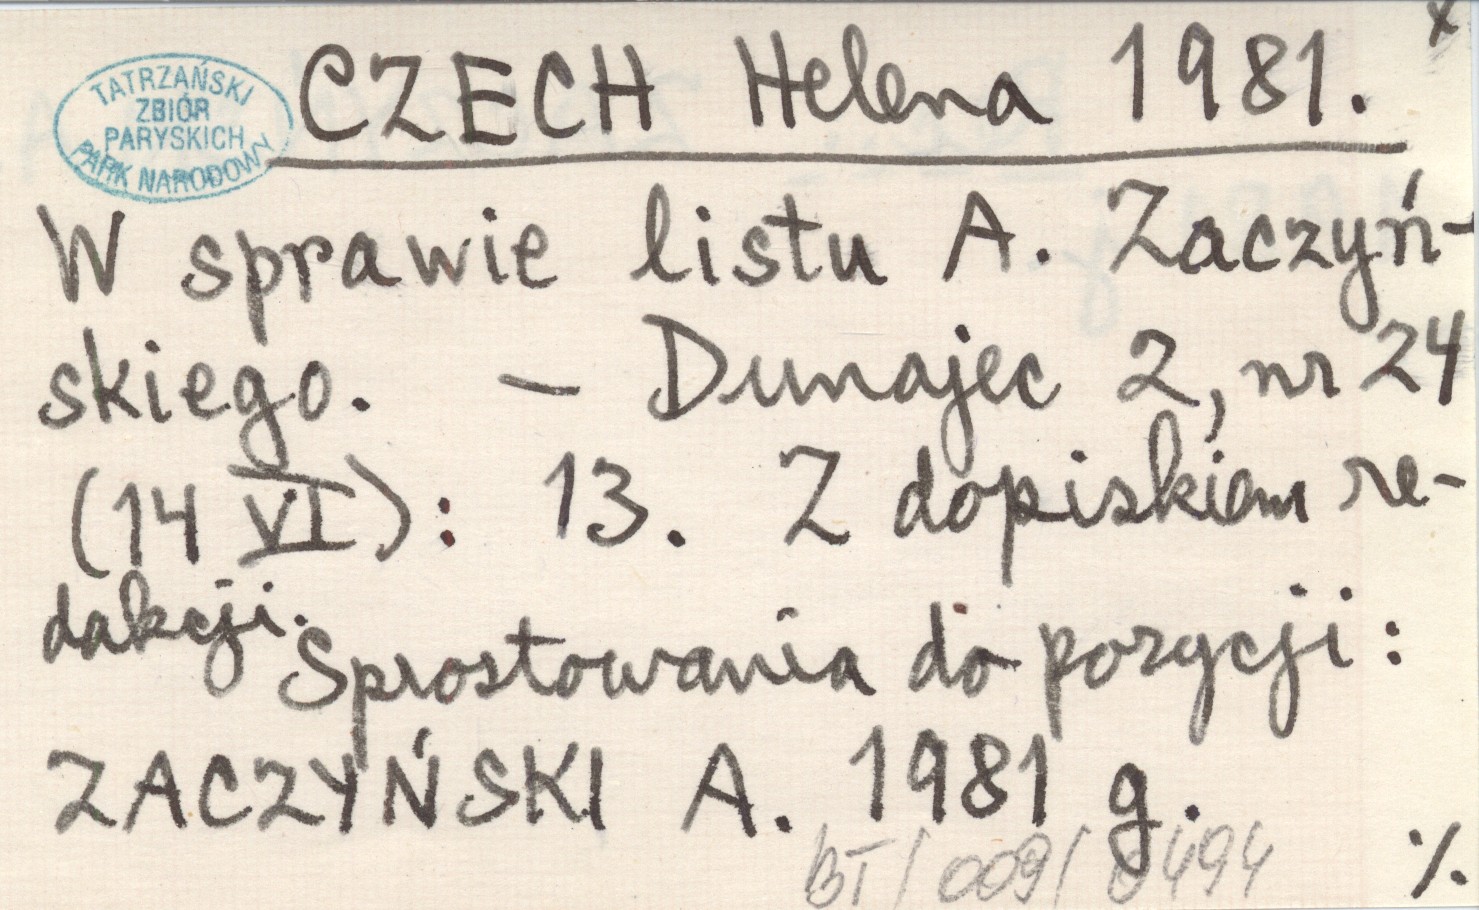 TATRZAŃSKI
ZBIÓR
PARYSKICH
PARK NARODOWY
CZECH Helena 1981.
x
W sprawie listu A. Zaczyń-
skiego. – Dunajec 2, nr 24
(14 VI): 13. Z dopiskiem re-
dakcji.
Sprostowania do pozycji:
ZACZYŃSKI A. 1981 g.
BT/009/0494
%.